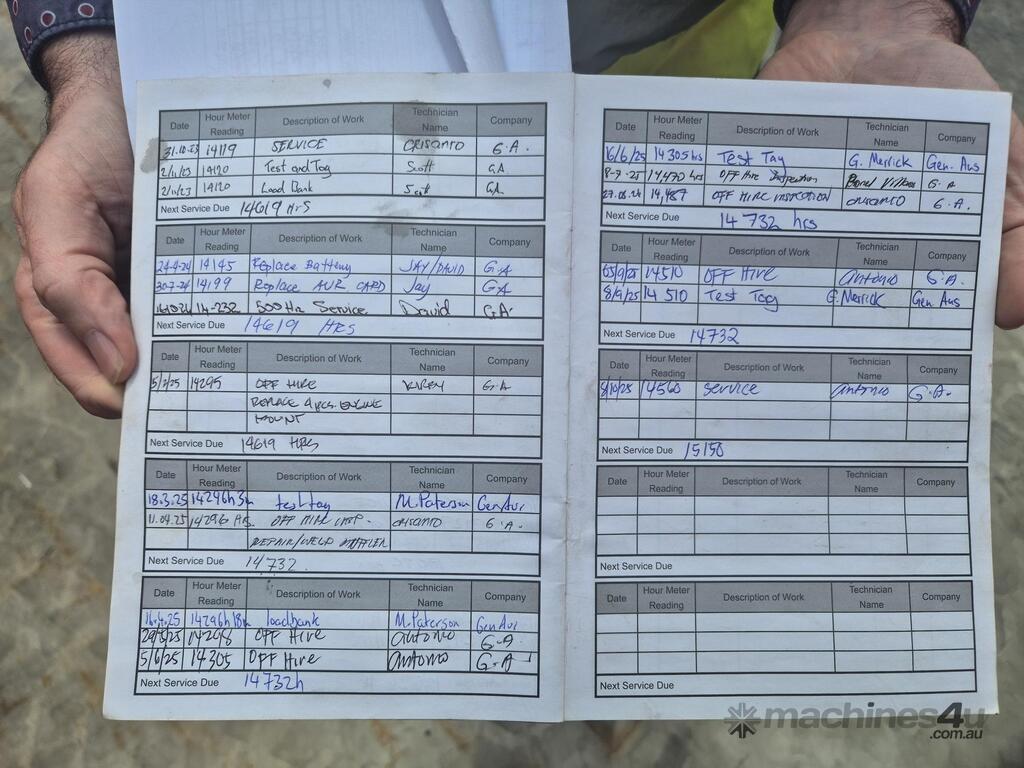 Date Hour Meter Reading Description of Work Technician Name Company
31.10.23 14119 SERVICE CRISANTO G.A.
2/11/23 14120 Test and Tag Scott GA
2/11/23 14120 Load Bank Scott GA
Next Service Due 14619 HRS
Date Hour Meter Reading Description of Work Technician Name Company
24-4-24 14145 Replace Battery JAY/DAVID G-A
30-7-24 14199 Replace AVR CARD Jay G-A
14-232 500 Hr Service David G.A.
Next Service Due 14619 HRS
Date Hour Meter Reading Description of Work Technician Name Company
5/2/25 14295 OFF HIRE G-A
REPLACE 4 PCS. ENGINE
MOUNT
Next Service Due 14619 HRS
Date Hour Meter Reading Description of Work Technician Name Company
18.3.25 14296h test tag M.Paterson
11.04.25 14296 Hrs OFF HIRE INSP. CRISANTO G.A.
REPAIR/WELD MUFFLER
Next Service Due 14732.
Date Hour Meter Reading Description of Work Technician Name Company
16.4.25 14296h18m loadbank M.Paterson
29/5/25 14298 OFF Hire Antonio G-A
5/6/25 14305 OFF Hire Antonio G-A
Next Service Due 14732h
Date Hour Meter Reading Description of Work Technician Name Company
16/6/25 14305hrs Test Tag G. Merrick Gen. Aus
8-7-25 14,470 hrs OFF Hire Inspection G-A
14,487 OFF HIRE INSPECTION CRISANTO G.A.
Next Service Due 14732 hrs
Date Hour Meter Reading Description of Work Technician Name Company
05/9/25 14510 OFF Hire Antonio G-A
8/9/25 14510 Test Tag G.Merrick Gen Aus
Next Service Due 14732
Date Hour Meter Reading Description of Work Technician Name Company
8/10/25 14560 Service Antonio G-A.
Next Service Due 15150
Date Hour Meter Reading Description of Work Technician Name Company
Next Service Due
Date Hour Meter Reading Description of Work Technician Name Company
Next Service Due
machines4u
.com.au